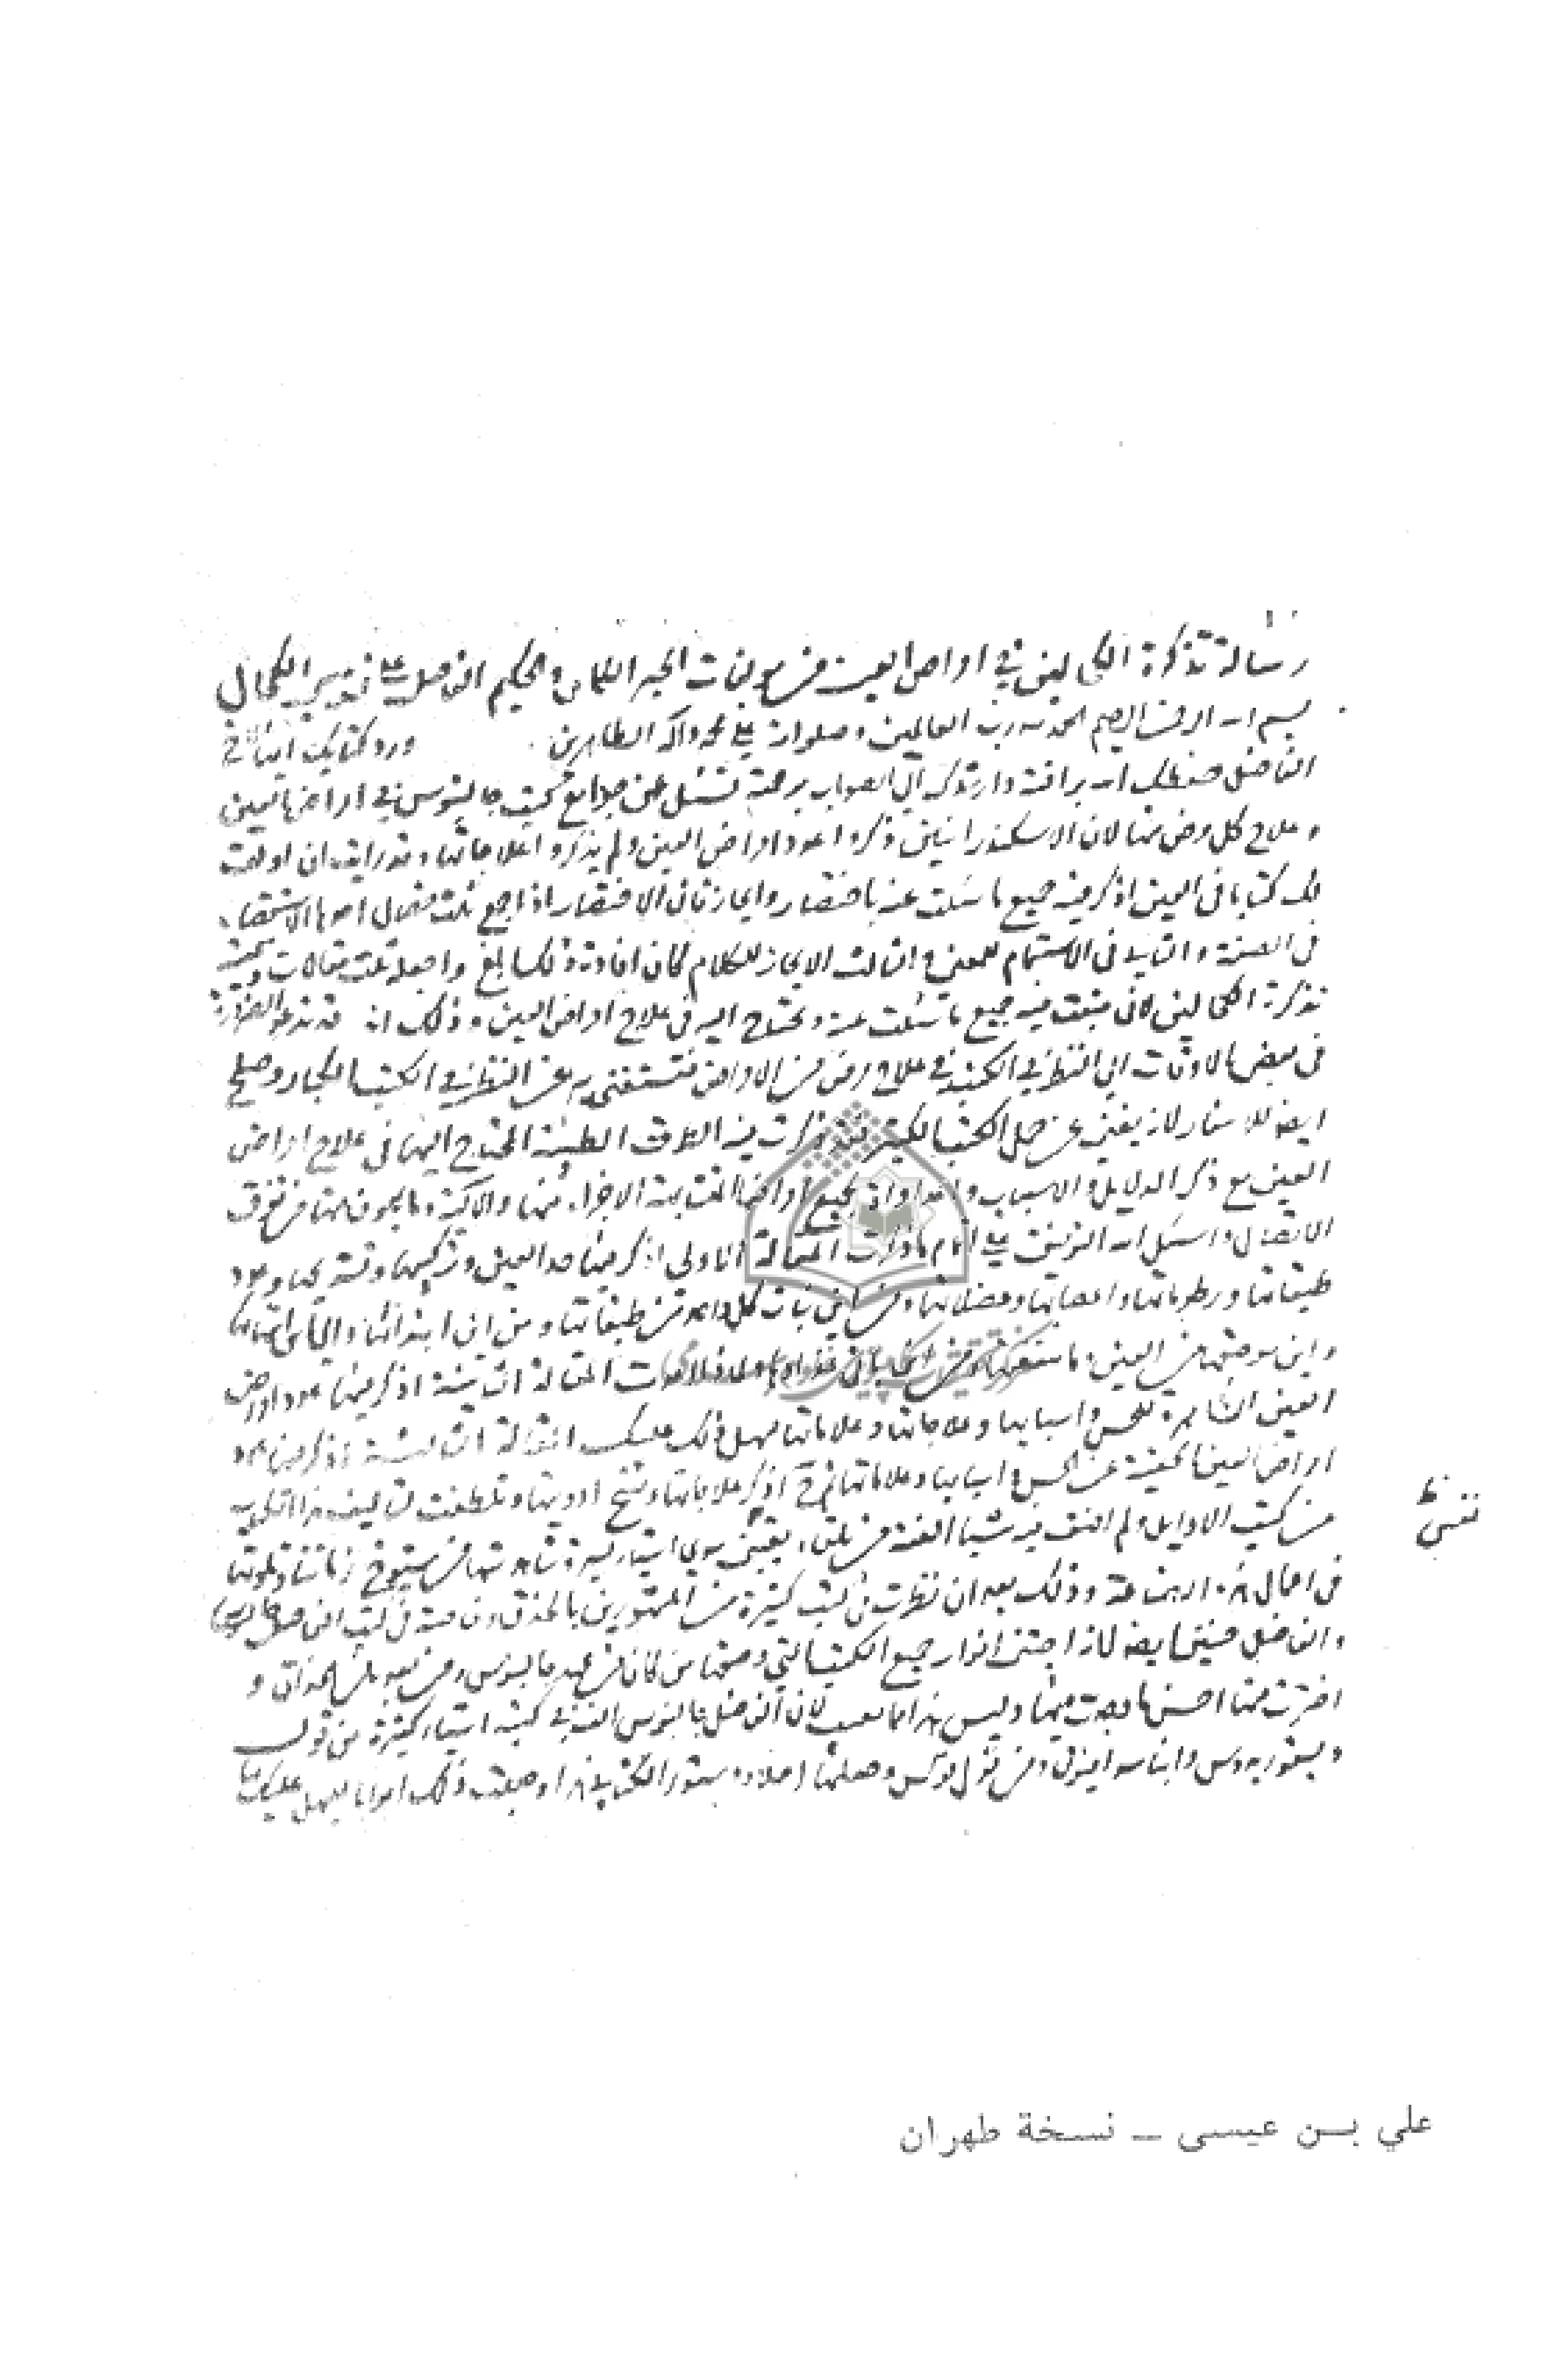 رسالة تذكرة الكحالين في امراض العين من مولفات الحبر الكامل والحكيم الفاضل علي بن عيسى الكحال
بسم الله الرحمن الرحيم الحمد لله رب العالمين وصلواته على محمد وآله الطاهرين ورد كتابك ايها الاخ
الفاضل حفظك الله برافته وارشدك الى الصواب برحمته تسئل عن جوامع كتب جالينوس في امراض العين
وعلاج كل مرض منها لان الاسكندرانيين ذكروا عدد امراض العين ولم يذكروا علاجاتها وقد رايت ان اولف
لك كتابا في العين اذكر فيه جميع ما سئلت عنه باختصار وايجاز فان الاختصار اذا جمع ثلث خصال احدها الاستقصاء
في الصفة والثاني في الاستتمام للمعنى والثالث الايجاز للكلام كان افادة ذلك ابلغ واجعله ثلث مقالات وسميته
تذكرة الكحالين لاني ضمنت فيه جميع ما سئلت عنه ويحتاج اليه في علاج امراض العين وذلك انه قد تدعو الضرورة
في بعض الاوقات الى النظر في الكتب في علاج مرض من الامراض فتستغني به عن النظر في الكتب الكبار وصلح
ايضا للاسفار لانه يغني عن حمل الكتب الكثيرة ذكرت فيه الطرق الطبية المحتاج اليها في علاج امراض
العين مع ذكر الدلايل والاسباب والمداواة لجميع امراضها المتشابهة الاجزاء منها والآلية وما يكون منها من تفرق
الاتصال واسئل الله التوفيق على اتمام ما ذكرت المقالة الاولى اذكر منها حد العين وتركيبها وتشريحها وعدد
طبقاتها ورطوباتها واعصابها وعضلاتها ومن اين نبات كل واحدة من طبقاتها ومن اين ابتدائها والى اين انتهائها
واين موضعها من العين وما منفعتها المقالة الثانية اذكر فيها عدد امراض
العين الظاهرة للحس واسبابها وعلاجاتها وعلاماتها ليسهل ذلك عليك المقالة الثالثة اذكر فيها عدد
امراض العين الخفية عن الحس واسبابها وعلاماتها ثم اذكر علاجاتها ونسخ ادويتها وتلطفت تاليف هذا الكتاب
من كتب الاوايل ولم اضف فيه شيئا الفته من تلقاء نفسي سوى اشياء يسيرة شاهدتها من شيوخ زماننا وتلوتها
في اعمال هذه الصناعة وذلك بعد ان نظرت في كتب كثيرة من المشهورين بالحذق وخاصة في كتب الفاضل جالينوس
والفاضل حنين ايضا لانه اجتنى اثمار جميع الكتب التي وضعها من كان من عهد جالينوس ومن بعده من الحذاق و
اخترت منها احسن ما وجدت فيها وليس هذا مما يعيب لان الفاضل جالينوس اثبت في كتبه اشياء كثيرة من قول
ديسقوريدوس ومن قول بولس وجعلتها اصلا ودستورا لكتابي هذا وجعلت ذلك ابوابا ليسهل عليك ما
علي بن عيسى ــ نسخة طهران